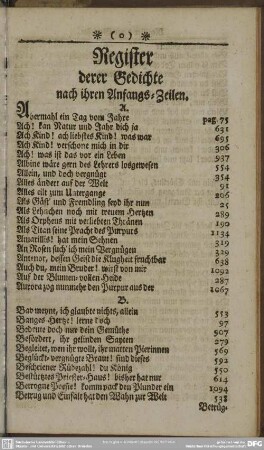 (o)
Register
derer Gedichte
nach ihren Anfangs-Zeilen.
A.
Abermahl ein Tag vom Jahre pag. 75
Ach! kan Natur und Jahr dich so 631
Ach Kind! ach liebstes Kind! was war 695
Ach Kind! verschone mich in dir 306
Ach! was ist das vor ein Leben 937
Albine wäre gern des Lehrers losgewesen 554
Allein, und doch vergnügt 354
Alles ändert auf der Welt 91
Alles eilt zum Untergange 206
Als Gäst' und Fremdling seyd ihr nun 25
Als Lehnchen noch mit treuem Hertzen 289
Als Orpheus mit verliebten Thränen 190
Als Titan seine Pracht des Purpurs 1134
Amarillis! hat mein Sehnen 319
An Rosen such ich mein Vergnügen 319
Antenor, dessen Geist die Klugheit fruchtbar 638
Auch du, mein Bruder! wirst von mir 1092
Auf der Blumen-vollen Heide 287
Aurora zog nunmehr den Purpur aus der 1067
B.
Bav meyne, ich glaubte nichts, allein 553
Banges Hertze! lerne doch 97
Bediene doch nur dein Gemüthe 507
Befördert, ihr gelinden Sayten 279
Begleitet, wen ihr wollt, ihr matten Pierinnen 569
Beglückt- vergnügte Braut! sind dieses 592
Bescheiener Rübezahl! du König 550
Bestürtztes Priester-Haus! bisher hat nur 614
Betrogne Poesie! komm pack dein Plunder ein 1094
Betrug und Einfalt hat den Wahn zur Welt 538
Betrüg-